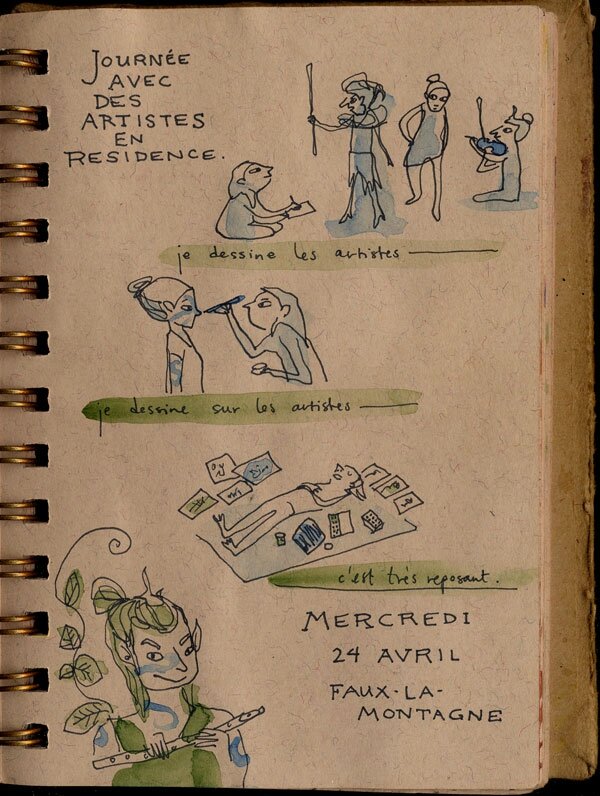 JOURNÉE
AVEC
DES
ARTISTES
EN
RESIDENCE.
je dessine les artistes
je dessine sur les artistes
c'est très reposant.
MERCREDI
24 AVRIL
FAUX-LA-
MONTAGNE